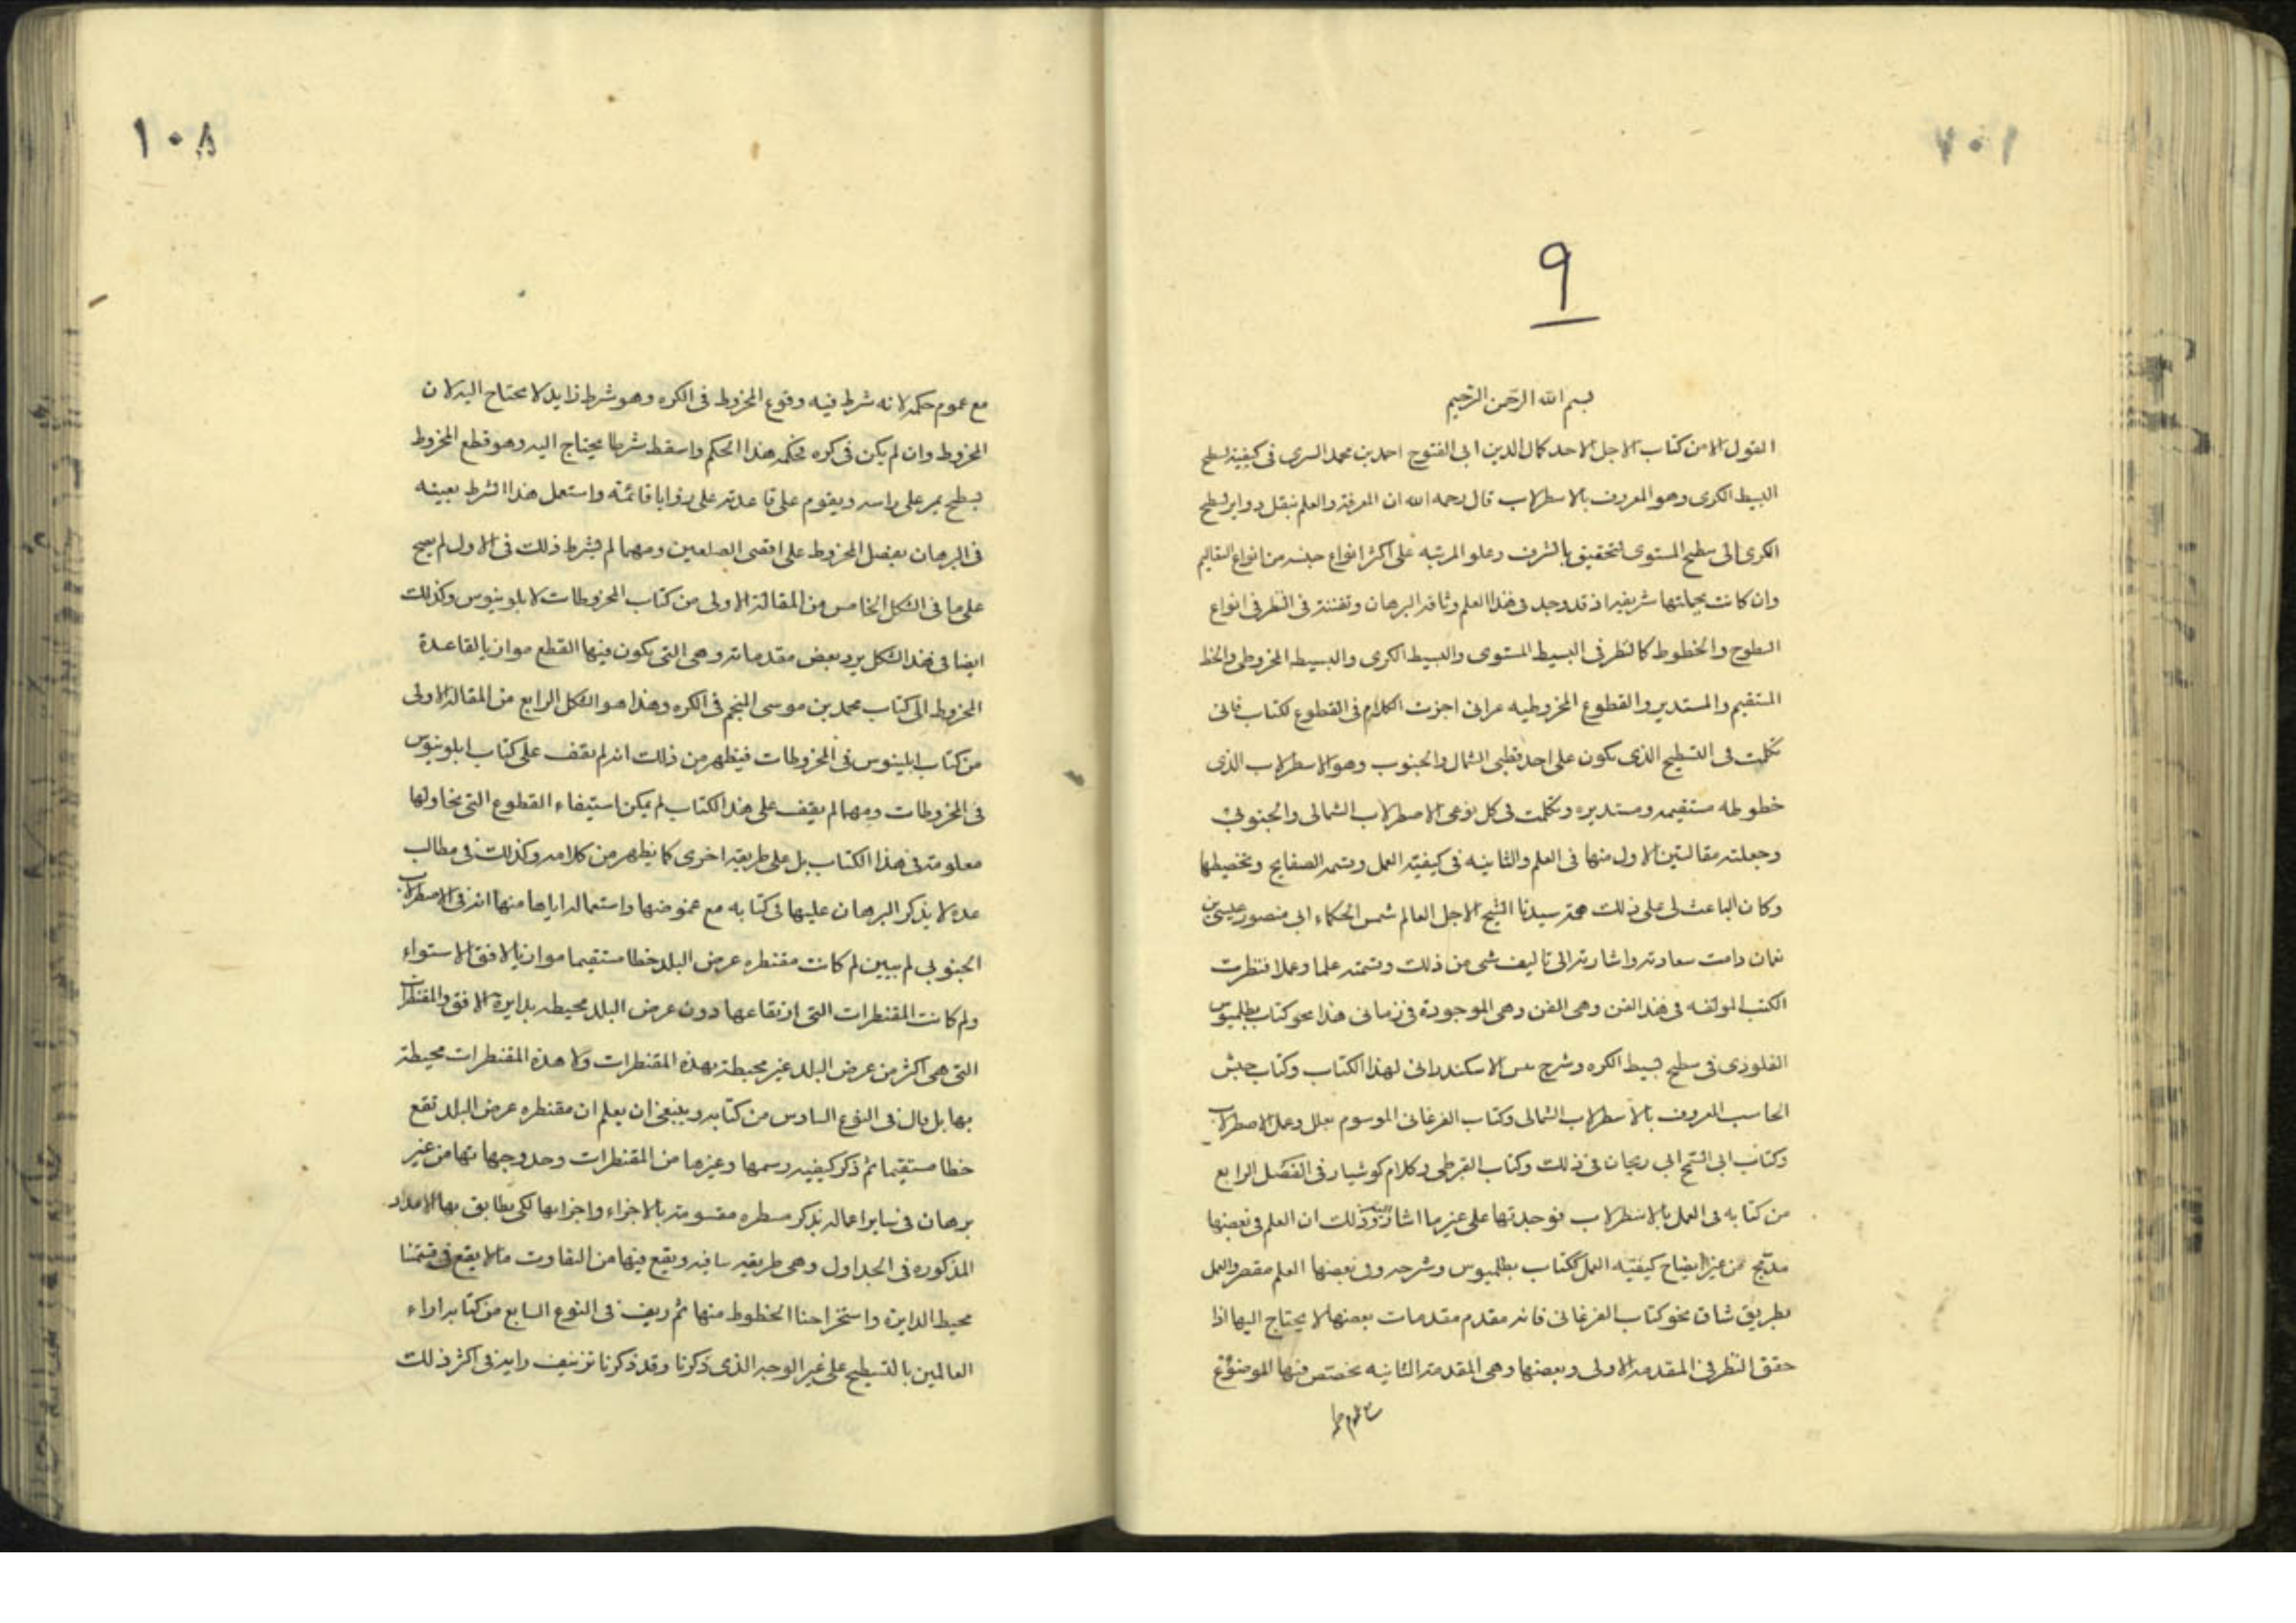 ٧٠١
٩
بسم الله الرحمن الرحيم
القول الا من كتاب الاجل الاحد كمال الدين ابى الفتوح احمد بن محمد السرى فى كيفية تسطيح
البسيط الكرى وهو المعروف بالاسطرلاب قال رحمه الله ان المعرفة والعلم بنقل دواير سطح
الكرى الى سطح المستوى لتحقيق بالشرف وعلو المرتبه على اكثر انواع جنسه من انواع التعاليم
وان كانت بجملتها شريفه اذ قد وجد فى هذا العلم وثاقه البرهان وتفننه فى النظر فى انواع
السطوح والخطوط كالنظر فى البسيط المستوى والبسيط الكرى والبسيط المخروطى والخط
المستقيم والمستدير والقطوع المخروطيه عرانى اجزت الكلام فى القطوع لكتاب ثانى
تكلمت فى التسطيح الذى يكون على احد قطبى الشمال والجنوب وهو الاسطرلاب الذى
خطوطه مستقيمه ومستديره وتكلمت فى كل نوعى الاصطرلاب الشمالى والجنوبى
وجعلته مقالتين الاول منها فى العلم والثانيه فى كيفيته العمل وقسمه الصفايح وتخطيطها
وكان الباعث لى على ذلك همة سيدنا الشيخ الاجل العالم شمس الحكماء ابى منصور عيسى بن
نعمان دامت سعادته واشارته الى تاليف شى من ذلك وتتمته علما وعملا فنظرت
الكتب المولفه فى هذا الفن وهى الفن وهى الموجودة فى زمانى هذا نحو كتاب بطلميوس
القلوذى فى سطح بسيط الكره وشرح بنس الاسكندرانى لهذا الكتاب وكتاب حبش
الحاسب المعروف بالاسطرلاب الشمالى وكتاب الفرغانى الموسوم بعلل وعمل الاصطرلاب
وكتاب ابى الشيخ ابى ريحان فى ذلك وكتاب القرطى وكلام كوشيار فى الفصل الرابع
من كتابه فى العمل بالاسطرلاب فوجدتها على غير ما اشار وذلك ان العلم فى بعضها
مدمج من غير ايضاح كيفيته العمل ككتاب بطلميوس وشرحه وفى بعضها العلم مقصر والعمل
بطريق شاق نحو كتاب الفرغانى فانه مقدم مقدمات بعضها لا يحتاج اليها اذا
حقق النظر فى المقدمه الاولى وبعضها وهى المقدمه الثانيه يختص فيها الموضوع
١٠٨
مع عموم حكمه لانه شرط فيه وقوع المخروط فى الكره وهو شرط زايد لا يحتاج اليه لان
المخروط وان لم يكن فى كره فحكمه هذا الحكم واسقط شرطا يحتاج اليه وهو قطع المخروط
بسطح يمر على راسه ويقوم على قاعدته على زوايا قائمة واستعمل هذا الشرط بعينه
فى البرهان بفصل المخروط على اقصى الضلعين ومهما لم يشرط ذلك فى الاول لم يصح
على ما فى الشكل الخامس من المقالة الاولى من كتاب المخروطات لابلونيوس وكذلك
ايضا فى هذا الشكل يرد بعض مقدماته وهى التى يكون فيها القطع موازيا لقاعدة
المخروط الى كتاب محمد بن موسى المنجم فى الكره وهذا هو الشكل الرابع من المقالة الاولى
من كتاب ابلينوس فى المخروطات فيظهر من ذلك انه لم يقف على كتاب ابلونيوس
فى المخروطات ومهما لم يقف على هذا الكتاب لم يمكن استيفاء القطوع التى يحاولها
معلومة فى هذا الكتاب بل على طريقه اخرى كما يظهر من كلامه وكذلك فى مطالب
عده لا يذكر البرهان عليها فى كتابه مع غموضها واستعماله اياها منها انه فى الاصطرلاب
الجنوبى لم يبين لم كانت مقنطره عرض البلد خطا مستقيما موازيا لافق الاستواء
ولم كانت المقنطرات التى ارتفاعها دون عرض البلد محيطه بدايرة الافق والمقنطرات
التى هى اكثر من عرض البلد غير محيطة بهذه المقنطرات ولا هذه المقنطرات محيطة
بها بل قال فى النوع السادس من كتابه وينبغى ان يعلم ان مقنطره عرض البلد تقع
خطا مستقيما ثم ذكر كيفيه رسمها وغيرها من المقنطرات وحد وجهاتها من غير
برهان فى ساير اعماله يذكر مسطره مقسومة بالاجزاء واجزايها لكى يطابق بها الاعداد
المذكوره فى الجداول وهى طريقه سافيه ويقع فيها من التفاوت ما لا يقع فى قسمتنا
محيط الدايرة واستخراجنا الخطوط منها ثم زيف فى النوع السابع من كتابه اراء
العالمين بالتسطيح على غير الوجه الذى ذكرنا وقد ذكرنا تزييف رايه فى اكثر ذلك